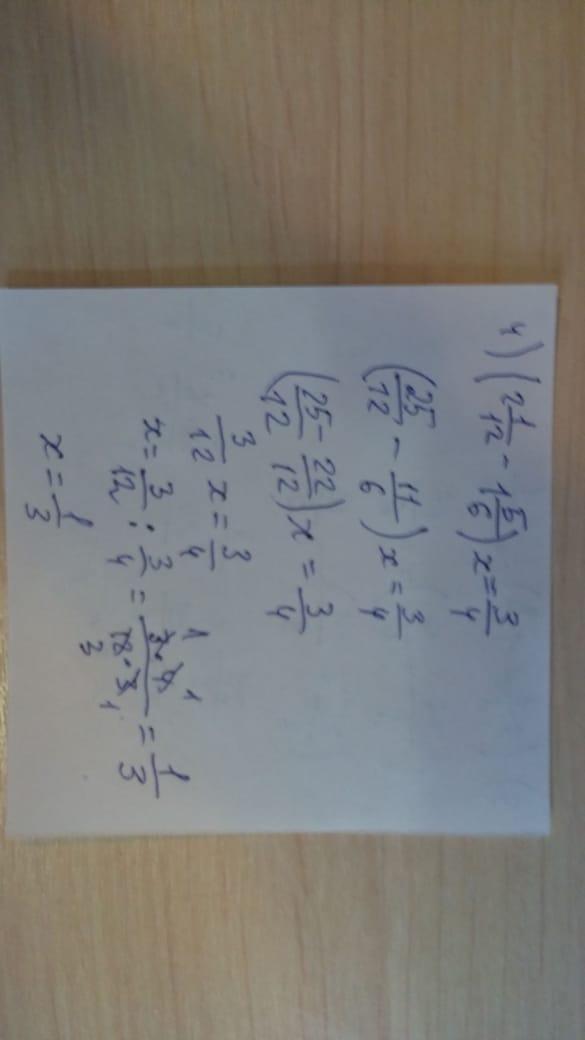 4) (2 1/12 - 1 5/6) x = 3/4
(25/12 - 11/6) x = 3/4
(25/12 - 22/12) x = 3/4
3/12 x = 3/4
x = 3/12 : 3/4 = 3·4/12·3 = 1/3
x = 1/3